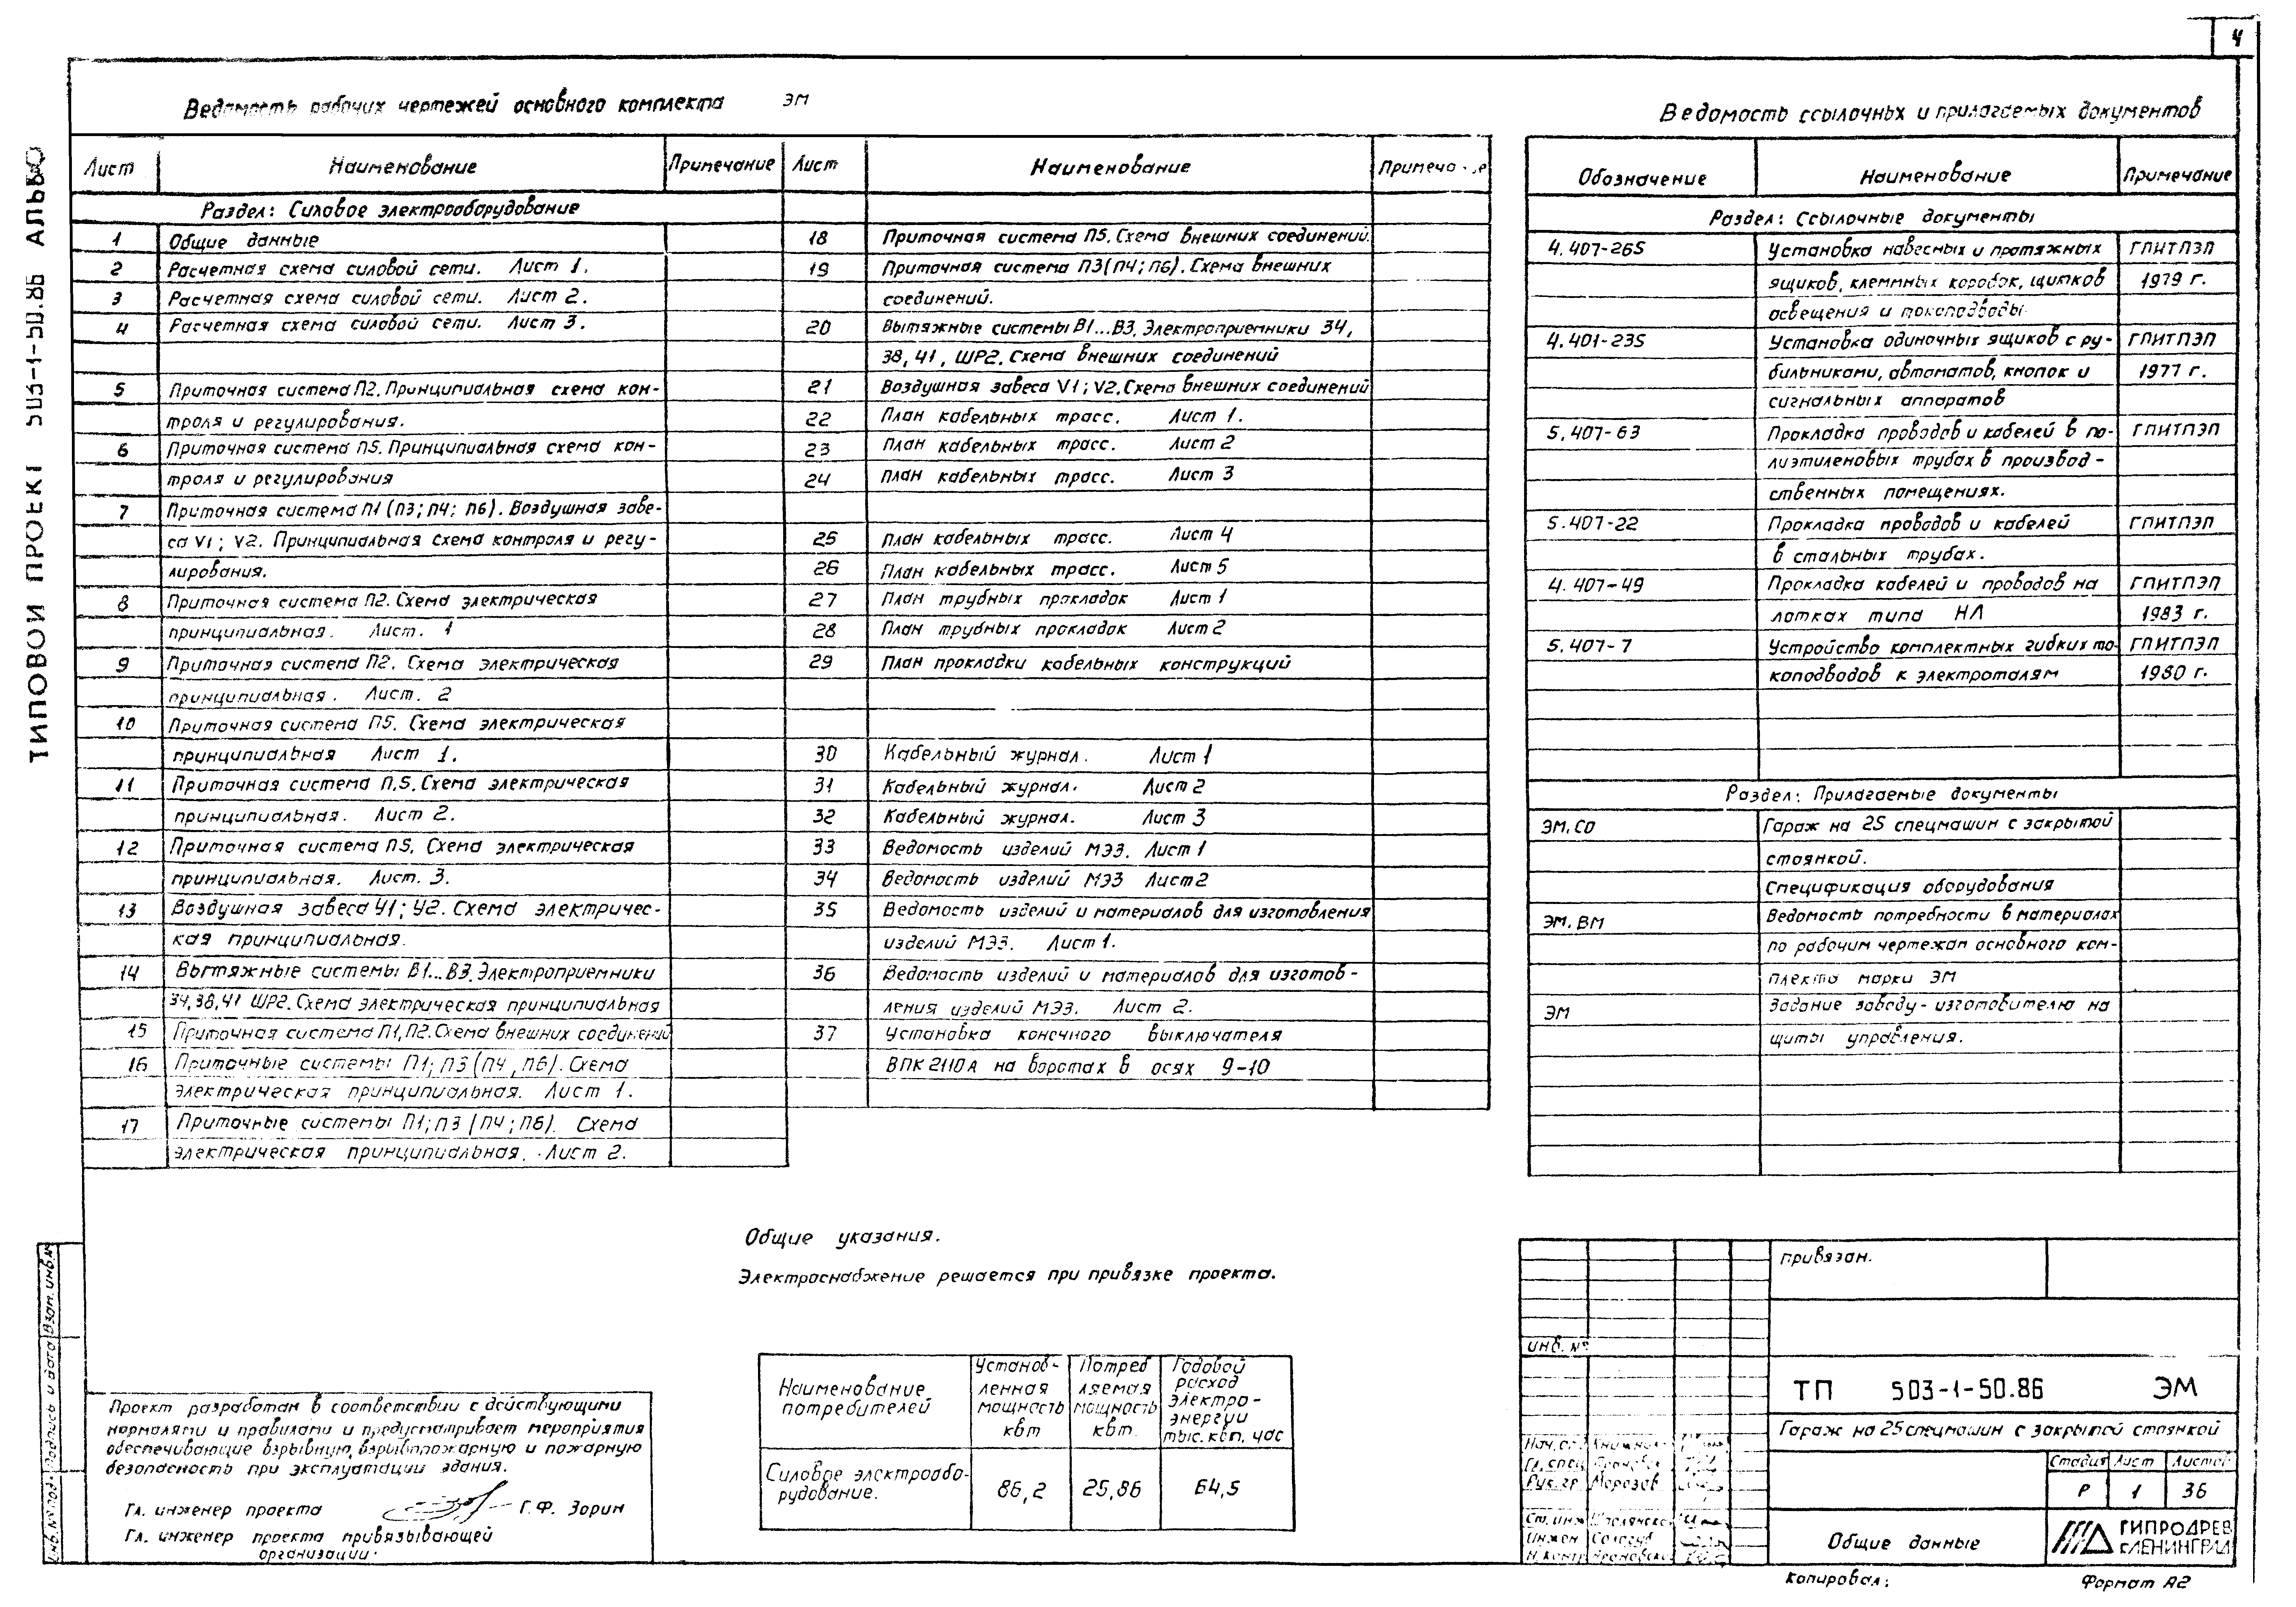 4
ТИПОВОЙ ПРОЕКТ 503-1-50.86
Ведомость рабочих чертежей основного комплекта ЭМ
Лист Наименование Примечание
Раздел: Силовое электрооборудование
1 Общие данные
2 Расчетная схема силовой сети. Лист 1.
3 Расчетная схема силовой сети. Лист 2.
4 Расчетная схема силовой сети. Лист 3.
5 Приточная система П2. Принципиальная схема кон-
троля и регулирования.
6 Приточная система П5. Принципиальная схема кон-
троля и регулирования
7 Приточная система П1 (П3; П4; П6). Воздушная заве-
са V1; V2. Принципиальная схема контроля и регу-
лирования.
8 Приточная система П2. Схема электрическая
принципиальная. Лист. 1
9 Приточная система П2. Схема электрическая
принципиальная. Лист. 2
10 Приточная система П5. Схема электрическая
принципиальная Лист 1.
11 Приточная система П.5. Схема электрическая
принципиальная. Лист 2.
12 Приточная система П5. Схема электрическая
принципиальная. Лист. 3.
13 Воздушная завеса У1; У2. Схема электричес-
кая принципиальная.
14 Вытяжные системы В1...В3. Электроприемники
34, 38, 41 ШР2. Схема электрическая принципиальная
15 Приточная система П1, П2. Схема внешних соединений
16 Приточные системы П1; П3 (П4, П6). Схема
электрическая принципиальная. Лист 1.
17 Приточные системы П1; П3 (П4; П6). Схема
электрическая принципиальная. Лист 2.
Лист Наименование
18 Приточная система П5. Схема внешних соединений.
19 Приточная система П3 (П4; П6). Схема внешних
соединений.
20 Вытяжные системы В1...В3. Электроприемники 34,
38, 41, ШР2. Схема внешних соединений
21 Воздушная завеса V1; V2. Схема внешних соединений
22 План кабельных трасс. Лист 1.
23 План кабельных трасс. Лист 2
24 План кабельных трасс. Лист 3
25 План кабельных трасс. Лист 4
26 План кабельных трасс. Лист 5
27 План трубных прокладок Лист 1
28 План трубных прокладок Лист 2
29 План прокладки кабельных конструкций
30 Кабельный журнал. Лист 1
31 Кабельный журнал. Лист 2
32 Кабельный журнал. Лист 3
33 Ведомость изделий МЭЗ. Лист 1
34 Ведомость изделий МЭЗ Лист 2
35 Ведомость изделий и материалов для изготовления
изделий МЭЗ. Лист 1.
36 Ведомость изделий и материалов для изготов-
ления изделий МЭЗ. Лист 2.
37 Установка конечного выключателя
ВПК 2110А на воротах в осях 9-10
Ведомость ссылочных и прилагаемых документов
Обозначение Наименование Примечание
Раздел: Ссылочные документы
4.407-265 Установка навесных и протяжных ГПИТПЭП
ящиков, клеммных коробок, щитков 1979 г.
освещения и токоподводы
4.401-235 Установка одиночных ящиков с ру- ГПИТПЭП
бильниками, автоматов, кнопок и 1977 г.
сигнальных аппаратов
5.407-63 Прокладка проводов и кабелей в по- ГПИТПЭП
лиэтиленовых трубах в производ-
ственных помещениях.
5.407-22 Прокладка проводов и кабелей ГПИТПЭП
в стальных трубах.
4.407-49 Прокладка кабелей и проводов на ГПИТПЭП
лотках типа НЛ 1983 г.
5.407-7 Устройство комплектных гибких то- ГПИТПЭП
каподводов к электроталям 1980 г.
Раздел: Прилагаемые документы
ЭМ.СО Гараж на 25 спецмашин с закрытой
стоянкой.
Спецификация оборудования
ЭМ.ВМ Ведомость потребности в материалах
по рабочим чертежам основного ком-
плекта марки ЭМ
ЭМ Задание заводу-изготовителю на
щиты управления.
Общие указания.
Электроснабжение решается при привязке проекта.
Наименование потребителей
Установленная мощность квт
Потребляемая мощность квт
Годовой расход электроэнергии тыс. квт. час
Силовое электрообо-
рудование. 86,2 25,86 64,5
Проект разработан в соответствии с действующими
нормалями и правилами и предусматривает мероприятия
обеспечивающие взрывную, взрывопожарную и пожарную
безопасность при эксплуатации здания.
Гл. инженер проекта Г.Ф. Зорин
Гл. инженер проекта привязывающей
организации:
Инв. № подл. Подпись и дата Взам. инв. №
привязан.
инв. №
ТП 503-1-50.86 ЭМ
Гараж на 25 спецмашин с закрытой стоянкой
Стадия Лист Листов
Р 1 36
Рук. гр. Морозов
Ст. инж
Инжен Сологуб
Н. контр
Общие данные
ГИПРОДРЕВ
г. ЛЕНИНГРАД
Копировал:
Формат А2